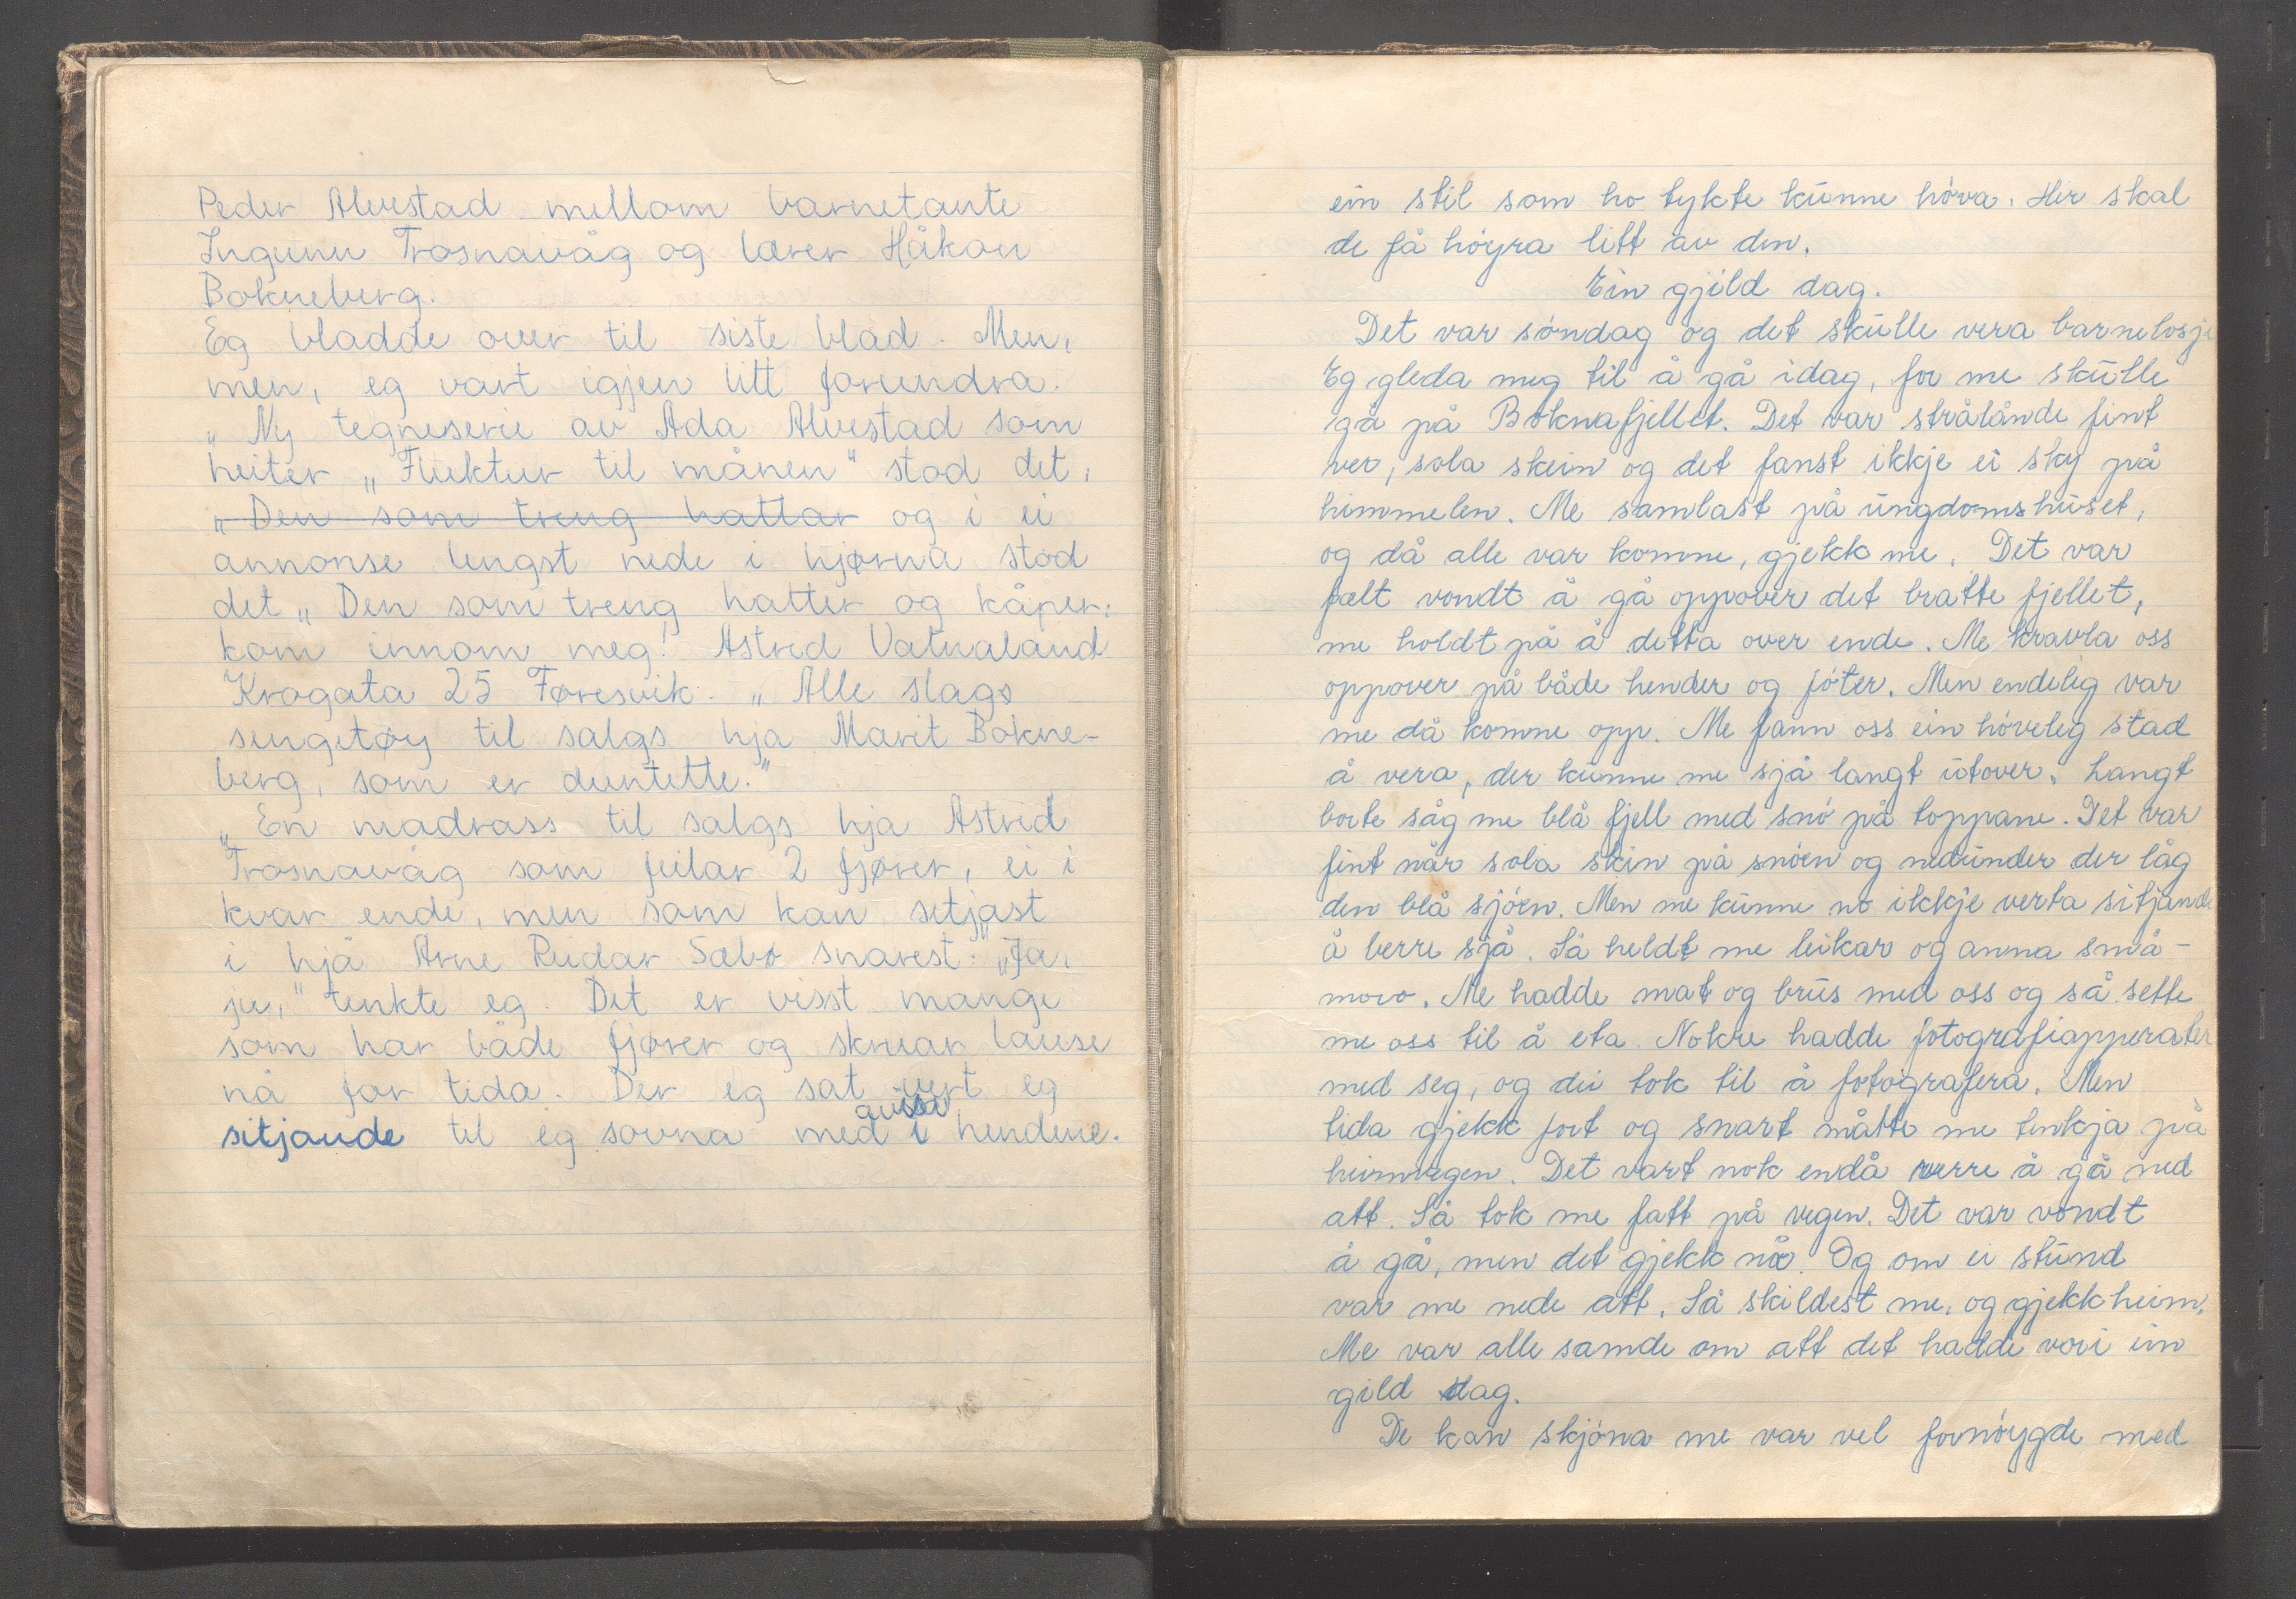 Peder Alvestad mellom barnetante
Ingunn Trosnavåg og lærer Håkon
Bokneberg.
Eg bladde over til siste blad. Men,
men, eg vart igjen litt forundra.
„Ny tegneserie av Ada Alvestad som
heiter „Fluktur til månen" stod det,
„Den som treng hattar og i ei
annonse lengst nede i hjørna stod
det „Den som treng hatter og kåper,
kom innom meg! Astrid Vatnaland
Krogata 25 Føresvik. „Alle slags
sengetøy til salgs hjå Marit Bokne-
berg, som er duntette."
„En madrass til salgs hja Astrid
Trosnavåg som feilar 2 fjører, ei i
kvar ende, men som kan setjast
i hjå Arne Reidar Sæbø snarest. „Ja,
ja," tenkte eg. Det er visst mange
som har både fjører og skruar lause
nå for tida. Der eg sat vert eg
avisa
sitjande til eg sovna med i hendene.
ein stil som ho tykte kunne höva. Her skal
de få höyra litt av den.
Ein gjild dag.
Det var söndag og det skulle vera barnelosje
Eg gleda meg til å gå idag, for me skulle
gå på Boknafjellet. Det var strålånde fint
ver, sola skein og det fanst ikkje ei sky på
himmelen. Me samlast på ungdomshuset,
og då alle var komne, gjekk me. Det var
fælt vondt å gå oppover det bratte fjellet,
me holdt på å detta over ende. Me kravla oss
oppover på både hender og föter. Men endeleg var
me då komne opp. Me fann oss ein höveleg stad
å vera, der kunne me sjå langt utover. Langt
borte såg me blå fjell med snö på toppane. Det var
fint når sola skin på snöen og nedunder der låg
den blå sjöen. Men me kunne no ikkje verta sitjande
å berre sjå. Så heldt me leikar og anna små-
moro. Me hadde mat og brus med oss og så sette
me oss til å eta. Nokre hadde fotografiapperater
med seg, og dei tok til å fotografera. Men
tida gjekk fort og snart måtte me tenkja på
heimvegen. Det vart nok endå verre å gå ned
att. Så tok me fatt på vegen. Det var vondt
å gå, men det gjekk nå. Og om ei stund
var me nede att. Så skildest me, og gjekk heim.
Me var alle samde om att det hadde vori ein
gild dag.
De kan skjöna me var vel fornöygde med